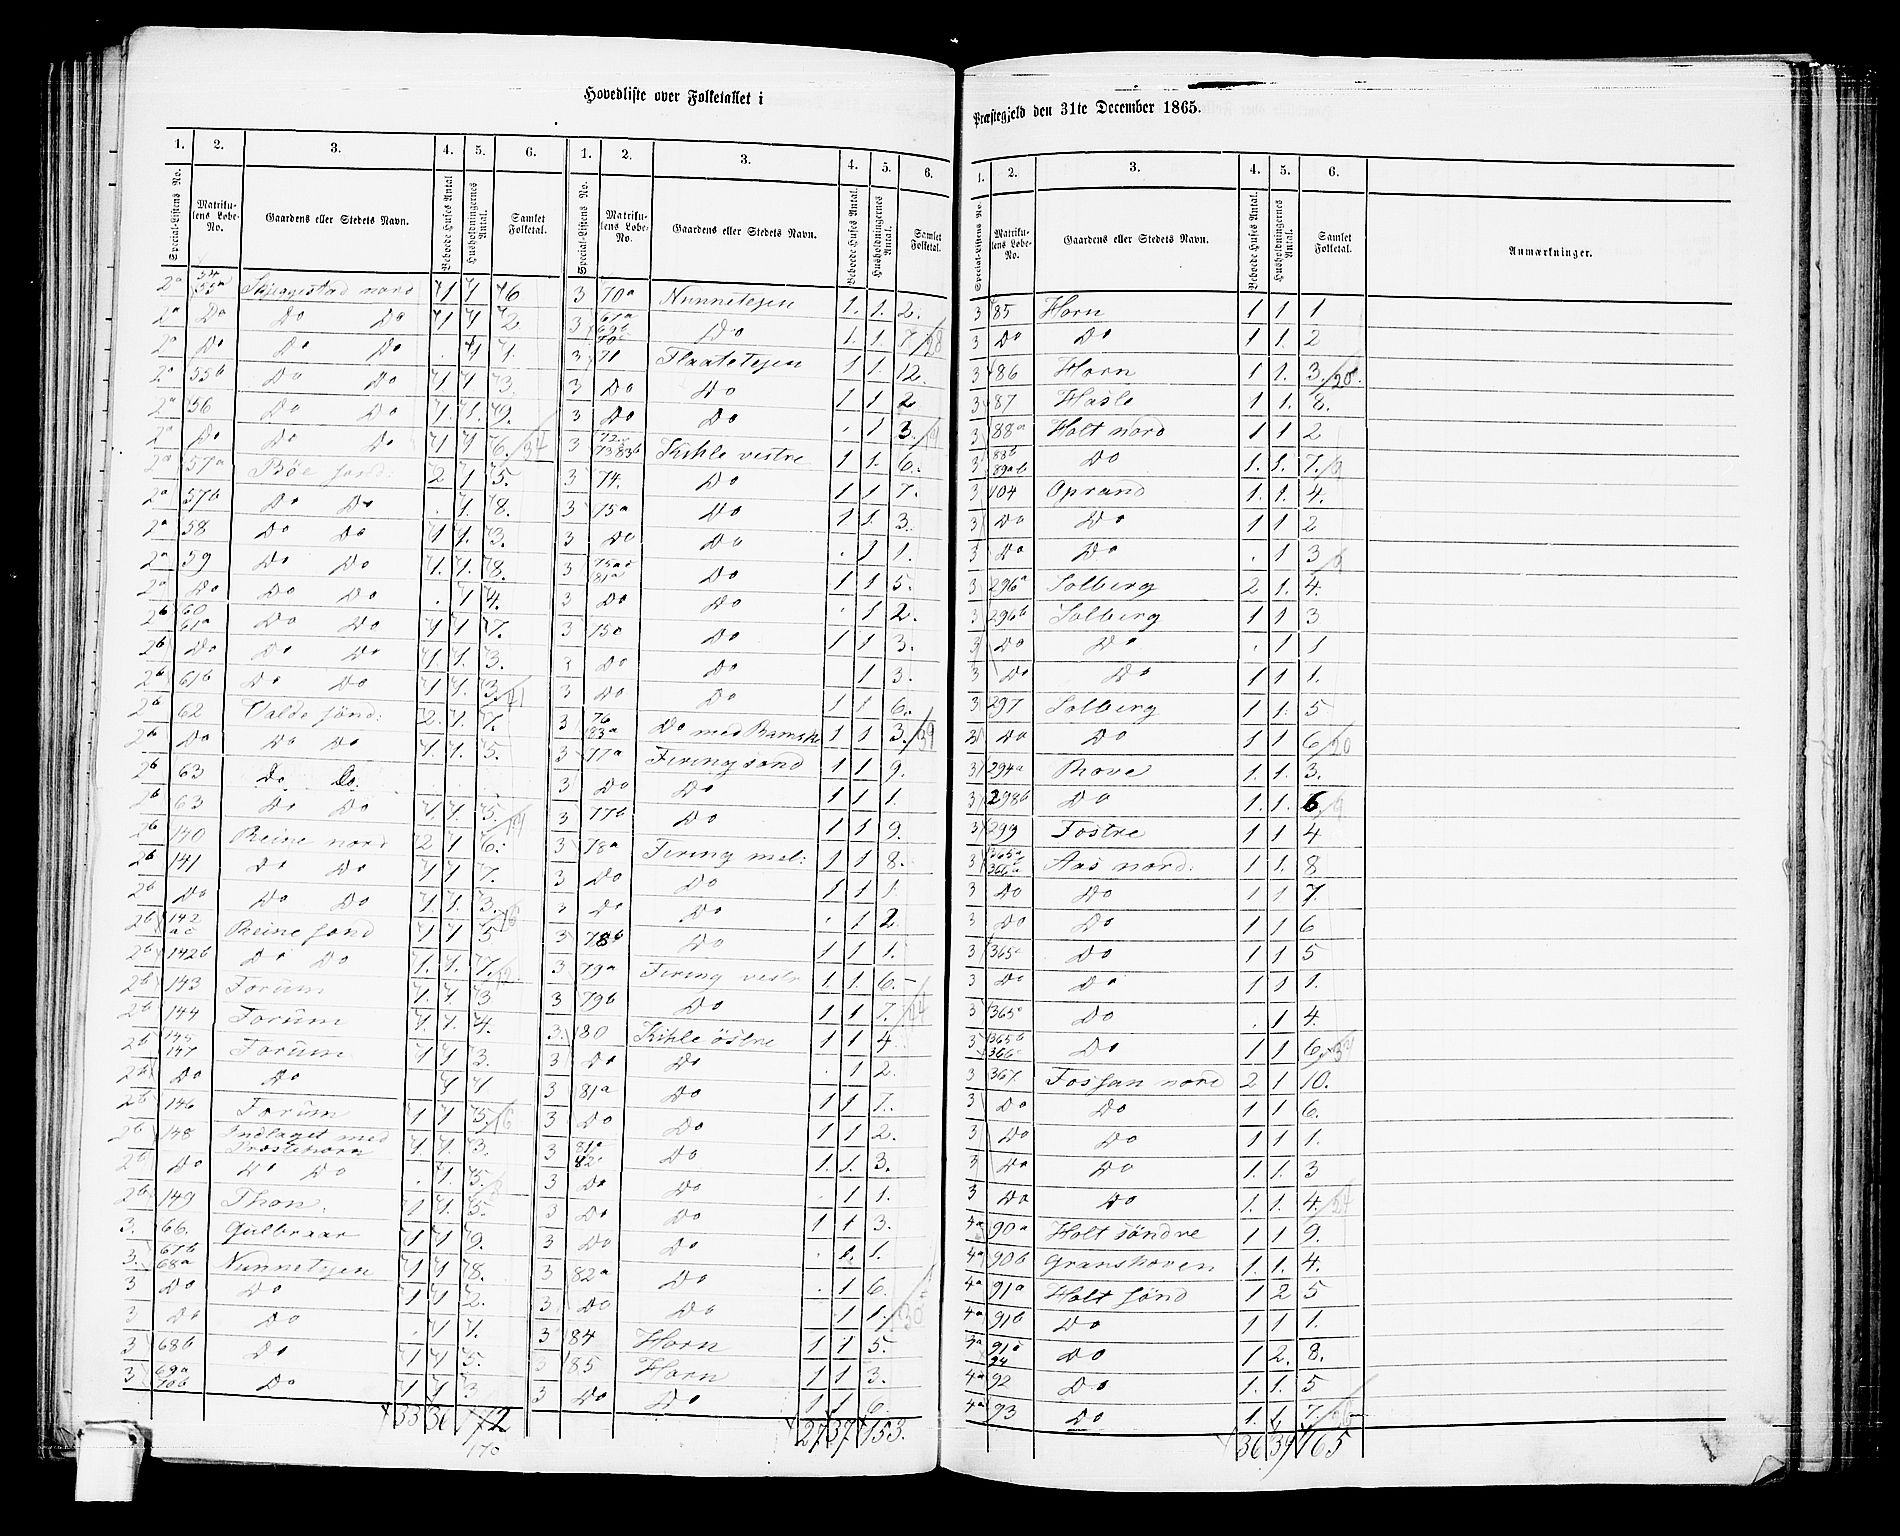 Hovedliste over Folketallet i
1. 2. 3. 4. 5. 6. 1. 2. 3. 4. 5. 6.
Special-Listens No. Matrikulens Løbe-No. Gaardens eller Stedets Navn. Beboede Huses Antal Husholdningernes Antal. Samlet Folketal. Special-Listens No. Matrikulens Løbe-No. Gaardens eller Stedets Navn. Beboede Huses Antal. Husholdningernes Antal. Samlet Folketal.
2a 54 55a Skjeggestad nord 1 1 6
2a Do Do Do 1 1 2
2a Do Do Do . 1 1.
2a 55b Do Do 1 1 3
2a 56 Do Do 1. 1. 9.
2a Do Do Do 1 1 6. /34
2a 57a Böe sønd: 2 1 5.
2a 57b Do Do . 1. 8.
2a 58 Do Do 1 1. 3.
2a 59 Do Do 1. 1. 8.
2a Do Do Do . 1 4.
2b 60 61a Do Do 1 1 7.
2b Do Do Do 1. 1. 3.
2b 61b Do Do 1 1. 3. /41
2b 62 Valde sønd: 2. 1. 7.
2b Do Do Do 1. 1. 5.
2b 63 Do Do . . .
2b 63 Do Do 1. 1. 5. /19
2b 140 Reine nord 2 1 6.
2b 141 Do Do 1 1 7.
2b Do Do Do 1. 1. 3. /16
2b 142 Reine sønd 1 1 5
2b 142b Do Do 1. 1. 7. /12
2b 143 Forüm 1. 1. 3
2b 144 Forüm 1. 1. 4.
2b 145 147 Forüm 1 1 3.
2b Do Do 1 1
2b 146 Forüm 1 1 5. /16
2b 148 Indlaget med 1. 1. 3.
2b Do Do Do . 1. 5.
2b 149 Thon. 1 1. 5.
3. 66. Gulbraar 1 1 9.
3. 67b 68a Nunnetejen 1 1 8.
3 Do Do 1 1 2.
3 Do Do . 1 1.
3 68b Do 1 1 5.
3 69a 70b Do 1 1 3
33 36 172
170
3 70a Nunnetejen 1. 1. 2.
3 Do 1. 1. 7 /28
3 71 Flaatetejen 1 1. 12.
3 Do Do 1 1 2
3 Do Do . 1 3. /19
3 72 73 83b Kihle vestre 1 1. 6.
3 74. Do 1 1 7.
3 75a Do 1 1. 3.
3 Do Do . 1 1.
3 81a Do 1 1 5.
3 Do Do . 1 2.
3 Do 1 1 3.
3 Do Do 1 3.
3 Do Do 1 1 6.
3 76 83a Do med Ramsk 1 1 3. /39
3 77a Firing sønd 1 1 9.
3 Do Do 1 1 1.
3 77b Do 1 1 9.
3 78a Firing mel: 1 1 8.
3 Do Do 1 1 1.
3 Do Do . 1 2.
3 78b Do 1 1 1.
3 79a Firing vestr 1. 1. 6.
3 79b Do 1 1 7. /44
3. 80 Kihle östre 1 1 4
3 Do Do . 1 2.
3 81a Do 1 1 7.
3 Do Do 1 1 2.
3 81a 82 Do 1. 1. 3.
3 Do Do . 1 1.
3 Do Do 1 1 3.
3 Do Do . 1.
3 82a Do . 1 6.
3 Do Do 1 1. /30
3 84 Horn 1 1 5.
3 85 Horn 1 1 3.
3 Do Do 1 1 6.
27 37 153.
Præstegjeld den 31te December 1865.
1. 2. 3. 4. 5. 6.
Special-Listens No. Matrikulens Løbe-No. Gaardens eller Stedets Navn. Beboede Huses Antal. Husholdningernes Antal. Samlet Folketal. Anmærkninger.
3 85 Horn 1 1 1
3 Do Do 1 1. 2
3 86 Horn 1 1. 3. /20.
3 87 Hasle 1 1. 8.
3 88a Holt nord 1 1 2
3 88b 89ab Do 1. 1. 7.
3 104 Oprand 1. 1. 4.
3 Do Do 1 1 2
3 Do Do . 1 3 /9
3 296a Solberg 2 1. 4.
3 296b Solberg 1 1 3
3 Do Do . 1 1
3 Do Do 1 1 1.
3 297 Solberg 1 1. 5
3 Do Do 1 1 6 /20
3 294a Rove 1. 1. 3.
3 298b Do 1. 1. 6 /9
3 299 Fostre 1 1 4
3 Aas nord: 1 1. 8
3 Do Do 1 1 7.
3 Do Do 1 1 6
3 365a Do 1 1 5
3 Do Do 1 1 1.
3 365 Do . 1 4.
3 365b 366 Do 1 1 6.
3 367. Fossan nord 2 1 10.
3 Do Do 1 1 6.
3 Do Do 1 1 1.
3 Do Do 1. 1. 3
3 Do Do 1. 1. 4. /24
4a 90a Holt søndre 1 1 9.
4a 90b Granshoven 1. 1. 4.
4a 91a Holt sønd 1 2 5
4a 91b Do 1 1 1.
4a 94 Do 1 2. 8.
4a 92 Do 1. 1. 5
4a 93 Do 1. 1. 7.
36 39 165